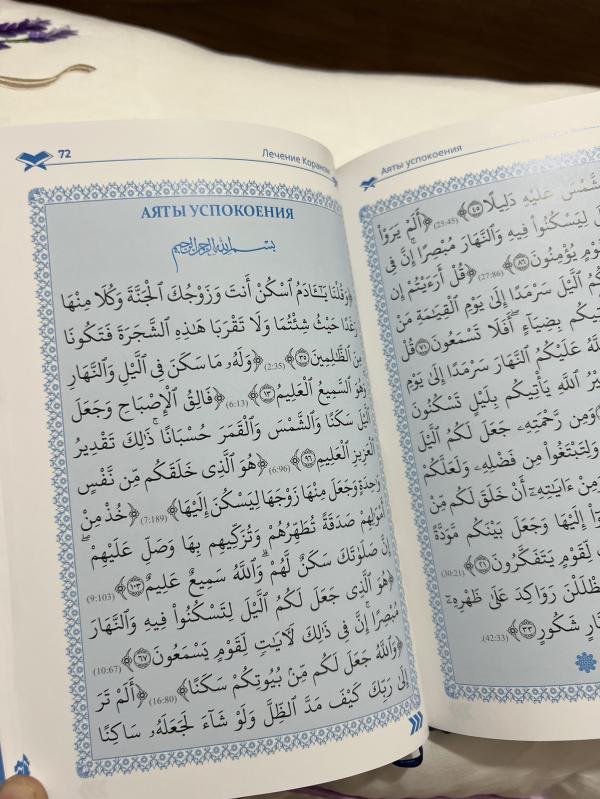 72
Лечение Кораном
АЯТЫ УСПОКОЕНИЯ
بِسْمِ اللَّهِ الرَّحْمَنِ الرَّحِيمِ
﴿وَقُلْنَا يَـٰٓـَٔادَمُ ٱسْكُنْ أَنتَ وَزَوْجُكَ ٱلْجَنَّةَ وَكُلَا مِنْهَا
رَغَدًا حَيْثُ شِئْتُمَا وَلَا تَقْرَبَا هَـٰذِهِ ٱلشَّجَرَةَ فَتَكُونَا
مِنَ ٱلظَّـٰلِمِينَ ٣٥﴾ (2:35) ﴿وَلَهُۥ مَا سَكَنَ فِى ٱلَّيْلِ وَٱلنَّهَارِ
وَهُوَ ٱلسَّمِيعُ ٱلْعَلِيمُ ١٣﴾ (6:13) ﴿فَالِقُ ٱلْإِصْبَاحِ وَجَعَلَ
ٱلَّيْلَ سَكَنًا وَٱلشَّمْسَ وَٱلْقَمَرَ حُسْبَانًا ۚ ذَٰلِكَ تَقْدِيرُ
ٱلْعَزِيزِ ٱلْعَلِيمِ ٩٦﴾ (6:96) ﴿هُوَ ٱلَّذِى خَلَقَكُم مِّن نَّفْسٍ
وَٰحِدَةٍ وَجَعَلَ مِنْهَا زَوْجَهَا لِيَسْكُنَ إِلَيْهَا﴾ (7:189) ﴿خُذْ مِنْ
أَمْوَٰلِهِمْ صَدَقَةً تُطَهِّرُهُمْ وَتُزَكِّيهِم بِهَا وَصَلِّ عَلَيْهِمْ ۖ
إِنَّ صَلَوٰتَكَ سَكَنٌ لَّهُمْ ۗ وَٱللَّهُ سَمِيعٌ عَلِيمٌ ١٠٣﴾ (9:103)
﴿هُوَ ٱلَّذِى جَعَلَ لَكُمُ ٱلَّيْلَ لِتَسْكُنُوا۟ فِيهِ وَٱلنَّهَارَ
مُبْصِرًا ۚ إِنَّ فِى ذَٰلِكَ لَـَٔايَـٰتٍ لِّقَوْمٍ يَسْمَعُونَ ٦٧﴾ (10:67)
﴿وَٱللَّهُ جَعَلَ لَكُم مِّنۢ بُيُوتِكُمْ سَكَنًا﴾ (16:80) ﴿أَلَمْ تَرَ
إِلَىٰ رَبِّكَ كَيْفَ مَدَّ ٱلظِّلَّ وَلَوْ شَآءَ لَجَعَلَهُۥ سَاكِنًا
Аяты успокоения
ٱلشَّمْسَ عَلَيْهِ دَلِيلًا ٤٥﴾ (25:45) ﴿أَلَمْ يَرَوْا۟
لِيَسْكُنُوا۟ فِيهِ وَٱلنَّهَارَ مُبْصِرًا ۚ إِنَّ فِى
يُؤْمِنُونَ ٨٦﴾ (27:86) ﴿قُلْ أَرَءَيْتُمْ إِن
ٱلَّيْلَ سَرْمَدًا إِلَىٰ يَوْمِ ٱلْقِيَـٰمَةِ مَنْ
بِضِيَآءٍ ۖ أَفَلَا تَسْمَعُونَ ٧١ قُلْ
ٱللَّهُ عَلَيْكُمُ ٱلنَّهَارَ سَرْمَدًا إِلَىٰ يَوْمِ
ٱللَّهِ يَأْتِيكُم بِلَيْلٍ تَسْكُنُونَ
وَمِن رَّحْمَتِهِۦ جَعَلَ لَكُمُ ٱلَّيْلَ
وَلِتَبْتَغُوا۟ مِن فَضْلِهِۦ وَلَعَلَّكُمْ
ءَايَـٰتِهِۦٓ أَنْ خَلَقَ لَكُم مِّنْ
إِلَيْهَا وَجَعَلَ بَيْنَكُم مَّوَدَّةً
لِّقَوْمٍ يَتَفَكَّرُونَ ٢١﴾ (30:21)
رَوَاكِدَ عَلَىٰ ظَهْرِهِۦٓ ۚ
شَكُورٍ ٣٣﴾ (42:33).